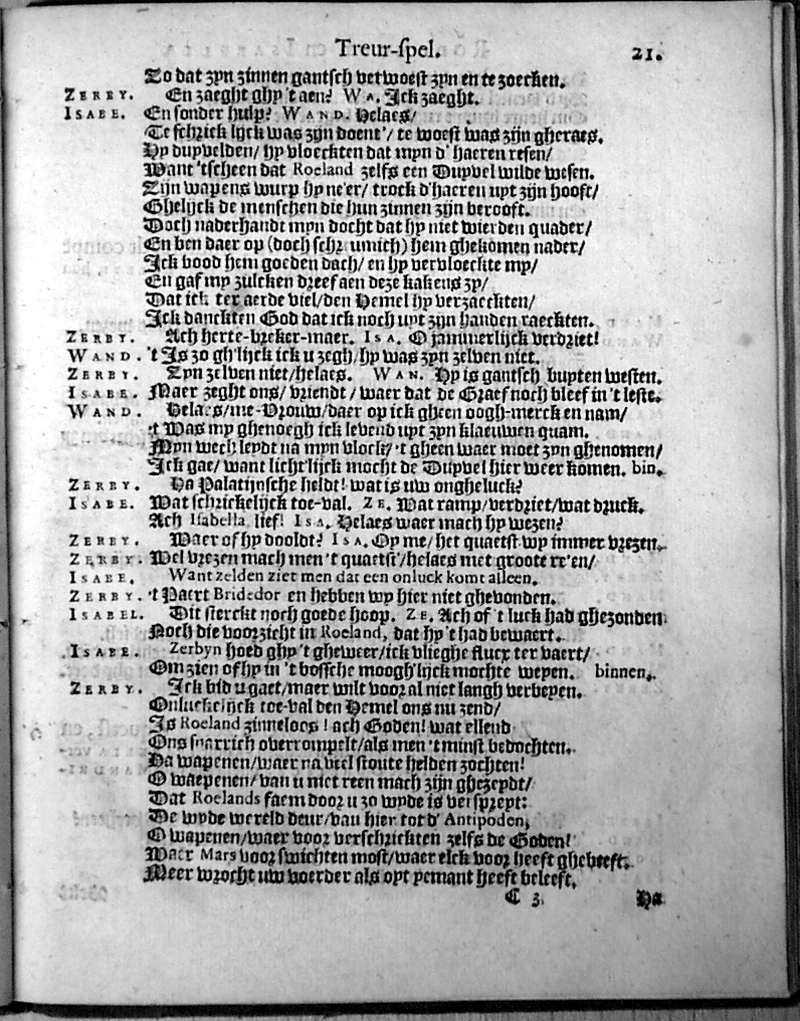 Treur-spel. 21.
Zo dat zyn zinnen gantsch verwoest zyn en te zoecken.
ZERBY. En zaeght ghy 't aen? WA. Ick zaeght.
ISABE. En sonder hulp? WAND. Helaes/
Te schrick lijck was zijn doent'/ te woest was zijn gheraes.
Hy duyvelden/ hy vloeckten dat myn d' haeren resen/
Want 'tscheen dat Roeland zelfs een Duyvel wilde wesen.
Zijn wapens wurp hy ne'er/ trock d'haeren uyt zijn hooft/
Ghelijck de menschen die hun zinnen zijn berooft.
Doch naderhandt myn docht dat hy niet wierden quader/
En ben daer op (doch schr umich) hem ghekomen nader/
Ick bood hem goeden dach/ en hy vervloeckte my/
En gaf my zulcken dreef aen deze kakens zy/
Dat ick ter aerde viel/ den Hemel hy verzaeckten/
Ick danckten God dat ick noch uyt zijn handen raeckten.
ZERBY. Ach herte-breker-maer. ISA. O jammerlijck verdriet!
WAND. 't Is zo gh'lijck ick u zegh/ hy was zyn zelven niet.
ZERBY. Zyn zelven niet/ helaes. WAN. Hy is gantsch buyten westen.
ISABE. Maer zeght ons/ vriendt/ waer dat de Graef noch bleef in 't leste.
WAND. Helaes/ me-Vrouw/ daer op ick gheen oogh-merck en nam/
't Was my ghenoegh ick levend uyt zyn klaeuwen quam.
Myn wech leydt na myn vlock/ 't gheen waer moet zyn ghenomen/
Ick gae/ want licht'lijck mocht de Duyvel hier weer komen. bin.
ZERBY. Ha Palatijnsche heldt! wat is uw ongheluck?
ISABE. Wat schrickelijck toe-val. ZE. Wat ramp/ verdriet/ wat druck.
Ach Isabella lief! ISA. Helaes waer mach hy wezen?
ZERBY. Waer of hy dooldt? ISA. Oy me/ het quaetst wy immer vrezen.
ZERBY. Wel vrezen mach men 't quaetst'/ helaes met groote re'en/
ISABE. Want zelden ziet men dat een onluck komt alleen.
ZERBY. 't Paert Bridedor en hebben wy hier niet ghevonden.
ISABEL. Dit sterckt noch goede hoop. ZE. Ach of 't luck had ghezonden
Noch die voorzicht in Roeland, dat hy 't had bewaert.
ISABE. Zerbyn hoed ghy 't gheweer/ ick vlieghe flucx ter vaert/
Om zien of hy in 't bossche moogh'lijck mochte weyen. binnen.
ZERBY. Ick bid u gaet/ maer wilt voor al niet langh verbeyen.
Onluckelijck toe-val den Hemel ons nu zend/
Is Roeland zinneloos! ach Goden! wat ellend
Ons snarrich overrompelt/ als men 't minst bedochten.
Ha wapenen/ waer na veel stoute helden zochten!
O waepenen/ van u niet reen mach zijn ghezeydt/
Dat Roelands faem door u zo wyde is verspreyt:
De wyde wereld deur/ van hier tot d' Antipoden,
O wapenen/ waer voor verschrickten zelfs de Goden!
Waer Mars voor swichten most/ waer elck voor heeft ghebeeft.
Meer wrocht uw voerder als oyt yemant heeft beleeft.
C 3. Ha